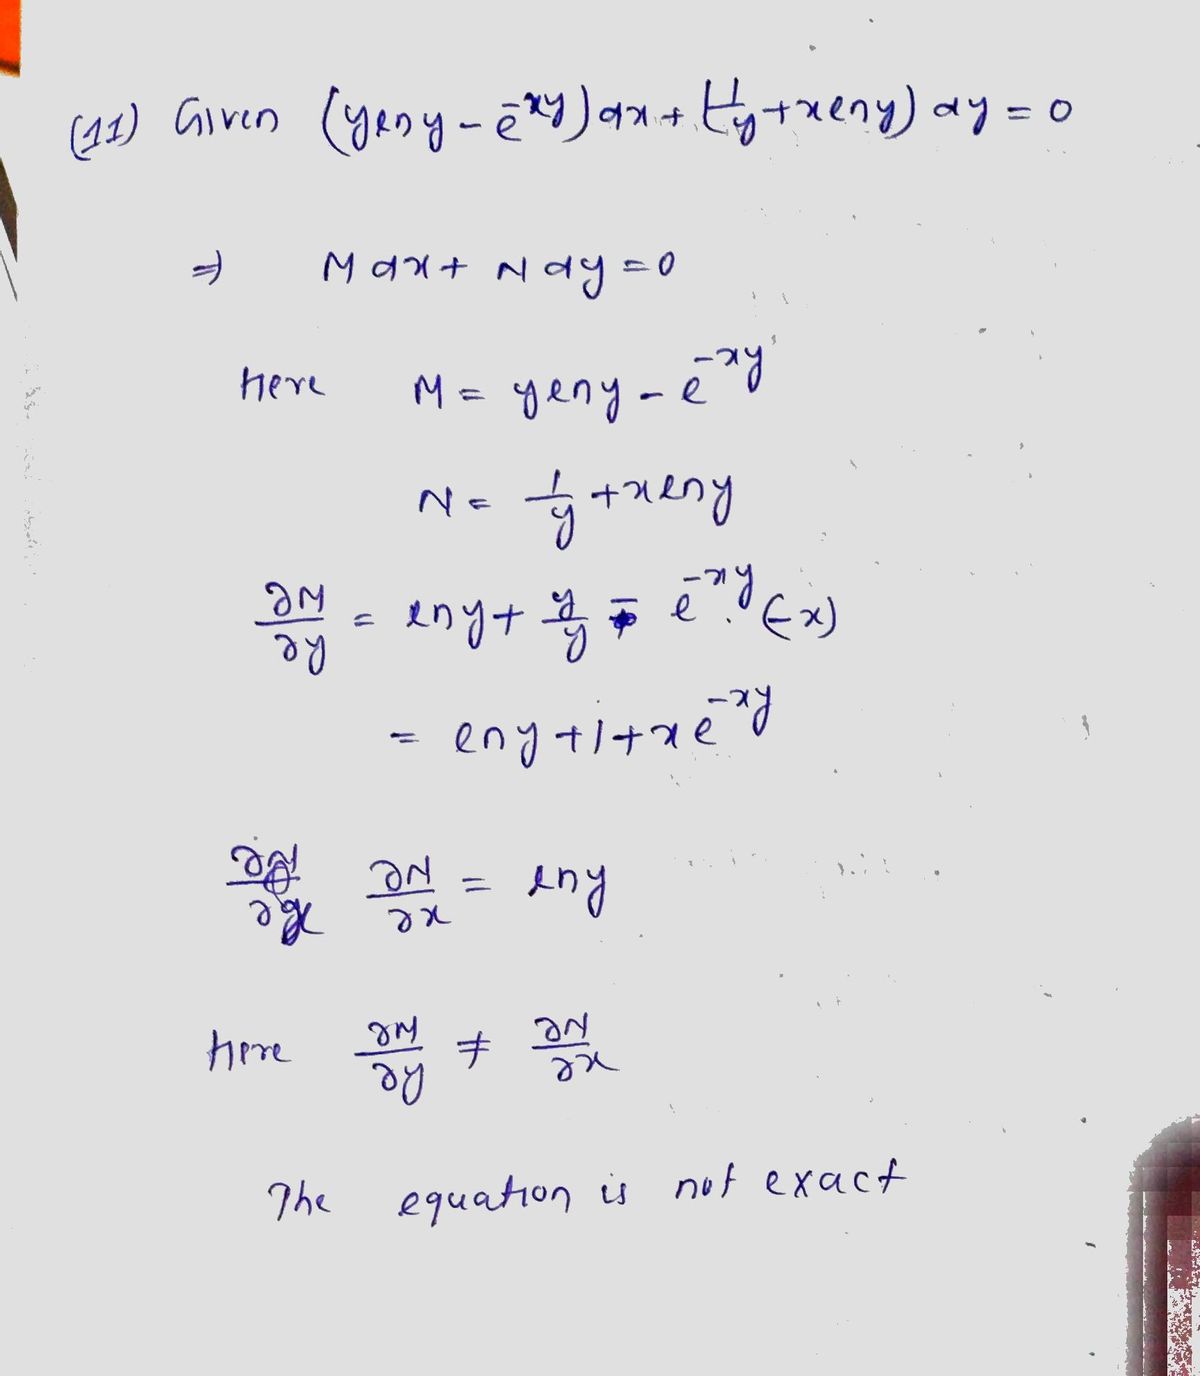 (11) Given (y ln y - e^-xy) dx + (1/y + x ln y) dy = 0
⇒ M dx + N dy = 0
Here M = y ln y - e^-xy
N = 1/y + x ln y
∂M/∂y = ln y + y/y - e^-xy . (-x)
= ln y + 1 + x e^-xy
∂N/∂x = ln y
Here ∂M/∂y ≠ ∂N/∂x
The equation is not exact